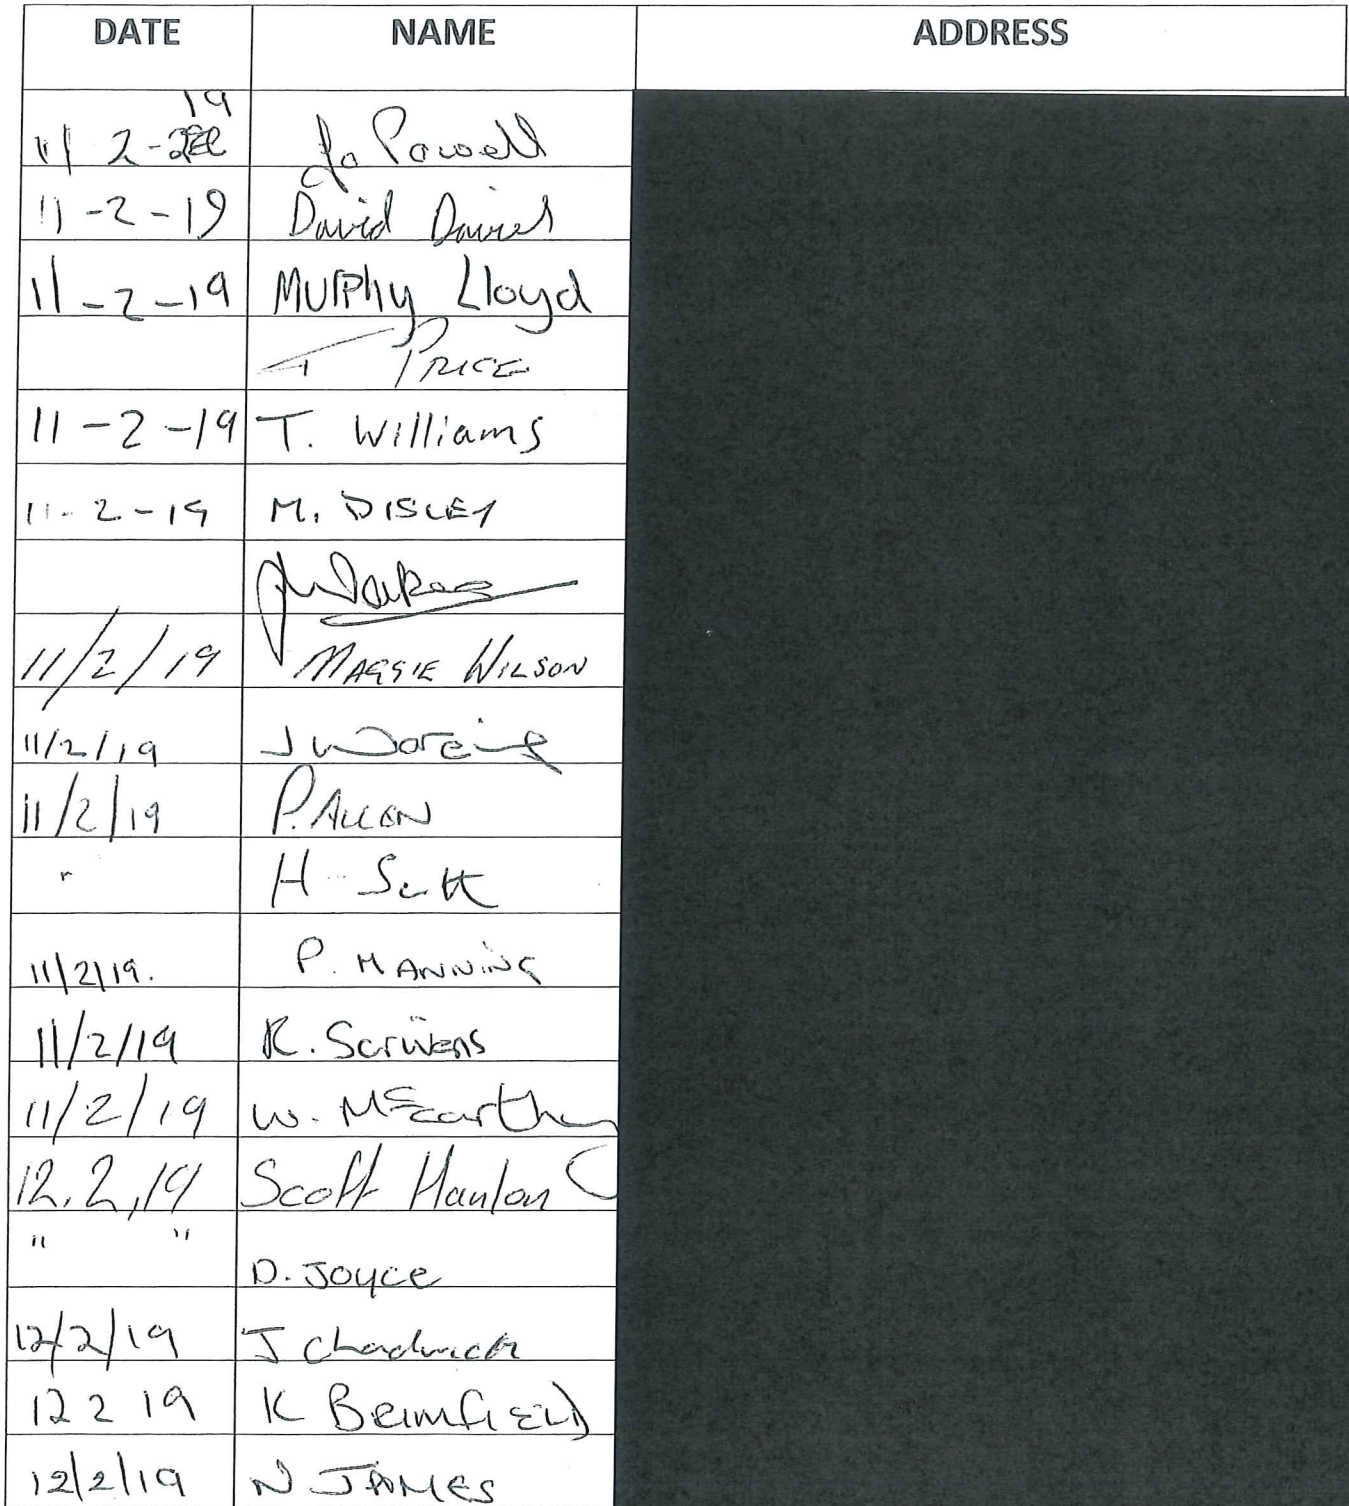 DATE NAME ADDRESS
19
11 2 - Jo Powell
11-2-19 David Davies
11-2-19 Murphy Lloyd
PRICE
11-2-19 T. Williams
11-2-19 M. DISLEY
11/2/19 MAGGIE WILSON
11/2/19 J
11/2/19 P. ALLEN
" H Scott
11/2/19. P. MANNING
11/2/19 R. Scrivens
11/2/19 W. McCarthy
12.2.19 Scott Hanlon
" " D. Joyce
12/2/19 J Chadwick
12 2 19 K
12/2/19 N JAMES